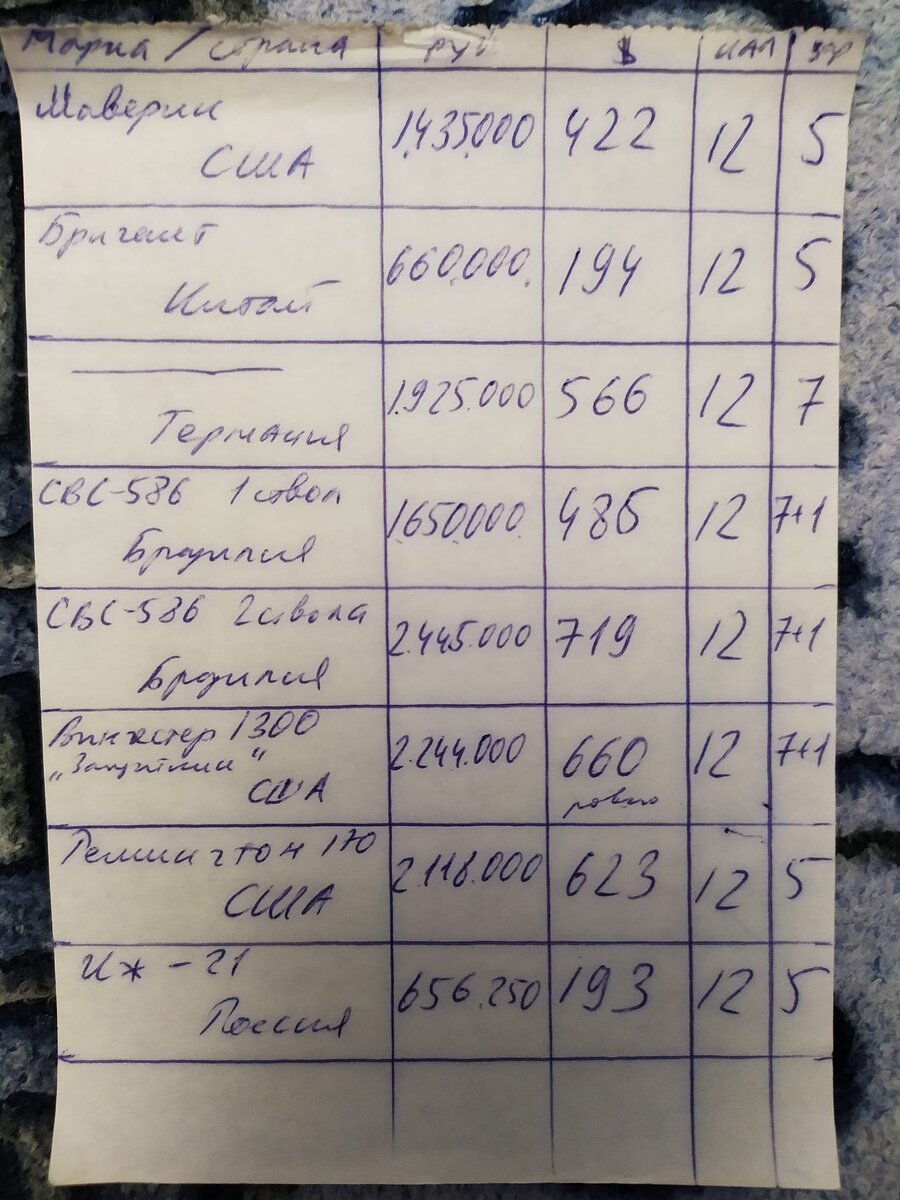 Марка / страна руб $ кал зар
Маверик
США 1.435.000 422 12 5
Бригант
Китай 660.000. 194 12 5
Германия 1.925.000 566 12 7
СВС-586 1 ствол
Бразилия 1.650.000. 485 12 7+1
СВС-586 2 ствола
Бразилия 2.445.000 719 12 7+1
Винчестер 1300
„Защитник“
США 2.244.000 660 12 7+1
ровно
Ремингтон 170
США 2.118.000 623 12 5
Иж - 21
Россия 656.250 193 12 5